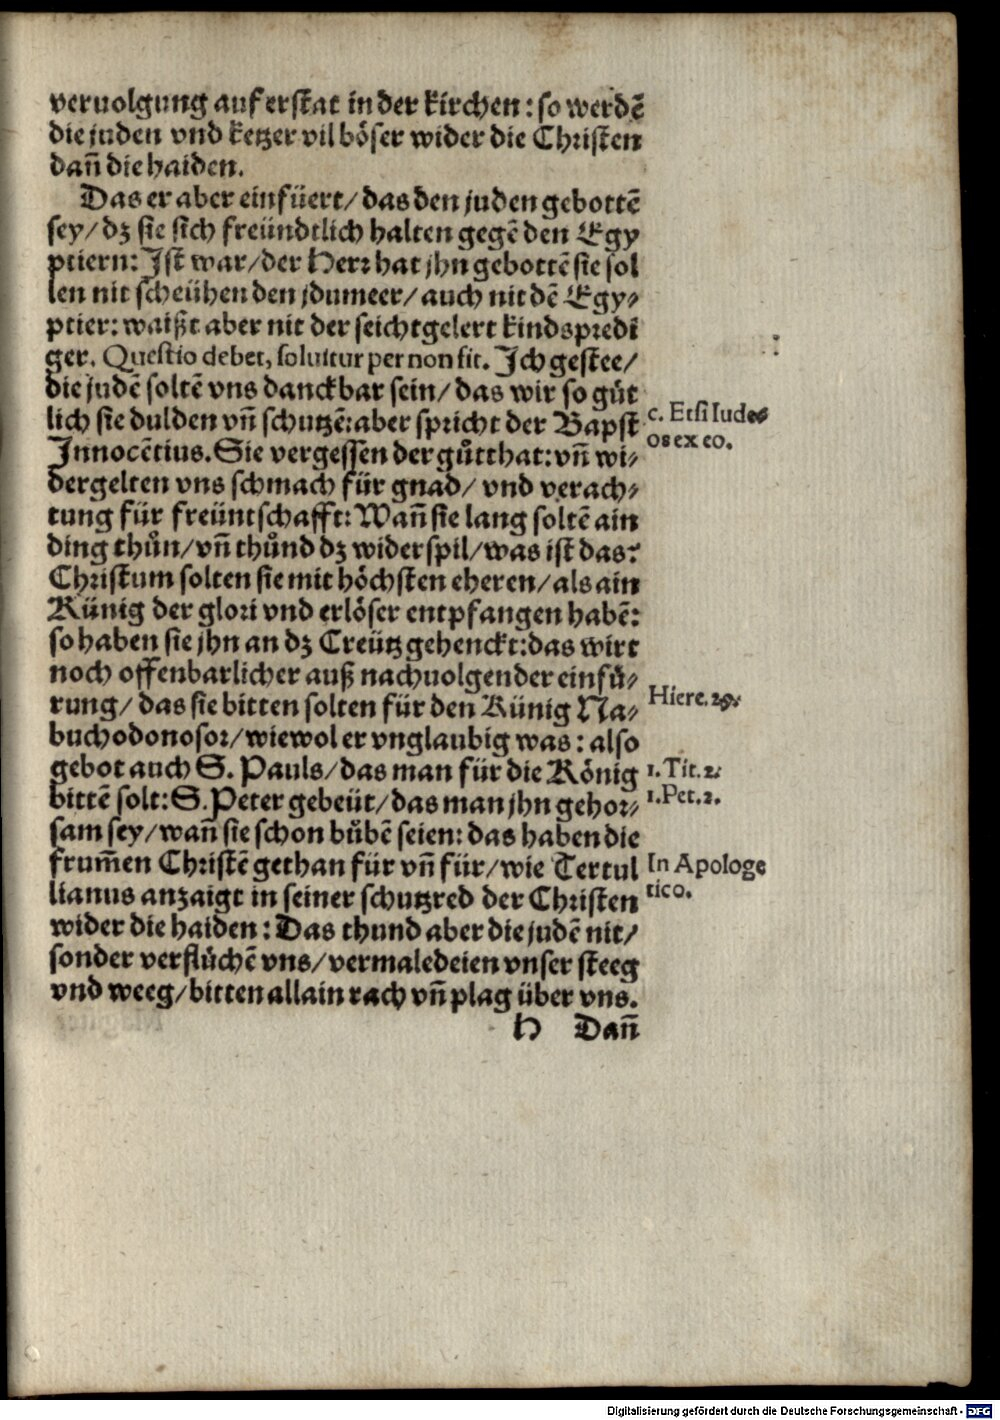 veruolgung auferstat in der kirchen: so werdē
die juden vnd ketzer vil böser wider die Christen
dañ die haiden.
Das er aber einfüert/ das den juden gebottē
sey/ dz sie sich freündtlich halten gegē den Egy
ptiern: Ist war/ der Herr hat jhn gebottē sie sol
len nit scheühen den jdumeer/ auch nit dē Egy-
ptier: waißt aber nit der seichtgelert kindspredi
ger. Questio debet, soluitur per non sit. Ich gestee/
die judē soltē vns danckbar sein/ das wir so güt
lich sie dulden vñ schutzē: aber spricht der Bapst
c. Etsi Iudeos
os ex eo.
Innocētius. Sie vergessen der gůtthat: vñ wi-
dergelten vns schmach für gnad/ vnd verach-
tung für freüntschafft: Wañ sie lang soltē ain
ding thůn/ vñ thůnd dz widerspil/ was ist das?
Christum solten sie mit höchsten eheren/ als ain
Künig der glori vnd erlöser entpfangen habē:
so haben sie jhn an dz Creütz gehenckt: das wirt
noch offenbarlicher auß nachuolgender einfü-
rung/ das sie bitten solten für den Künig Na-
Hiere. 29.
buchodonosor/ wiewol er vnglaubig was: also
gebot auch S. Pauls/ das man für die König
1. Tit. 2.
bittē solt: S. Peter gebeüt/ das man jhn gehor-
1. Pet. 2.
sam sey/ wañ sie schon bůbē seien: das haben die
frum̄en Christē gethan für vñ für/ wie Tertul
In Apologe
tico.
lianus anzaigt in seiner schutzred der Christen
wider die haiden: Das thund aber die judē nit/
sonder verflůchē vns/ vermaledeien vnser steeg
vnd weeg/ bitten allain rach vñ plag über vns.
H Dañ
Digitalisierung gefördert durch die Deutsche Forschungsgemeinschaft - DFG